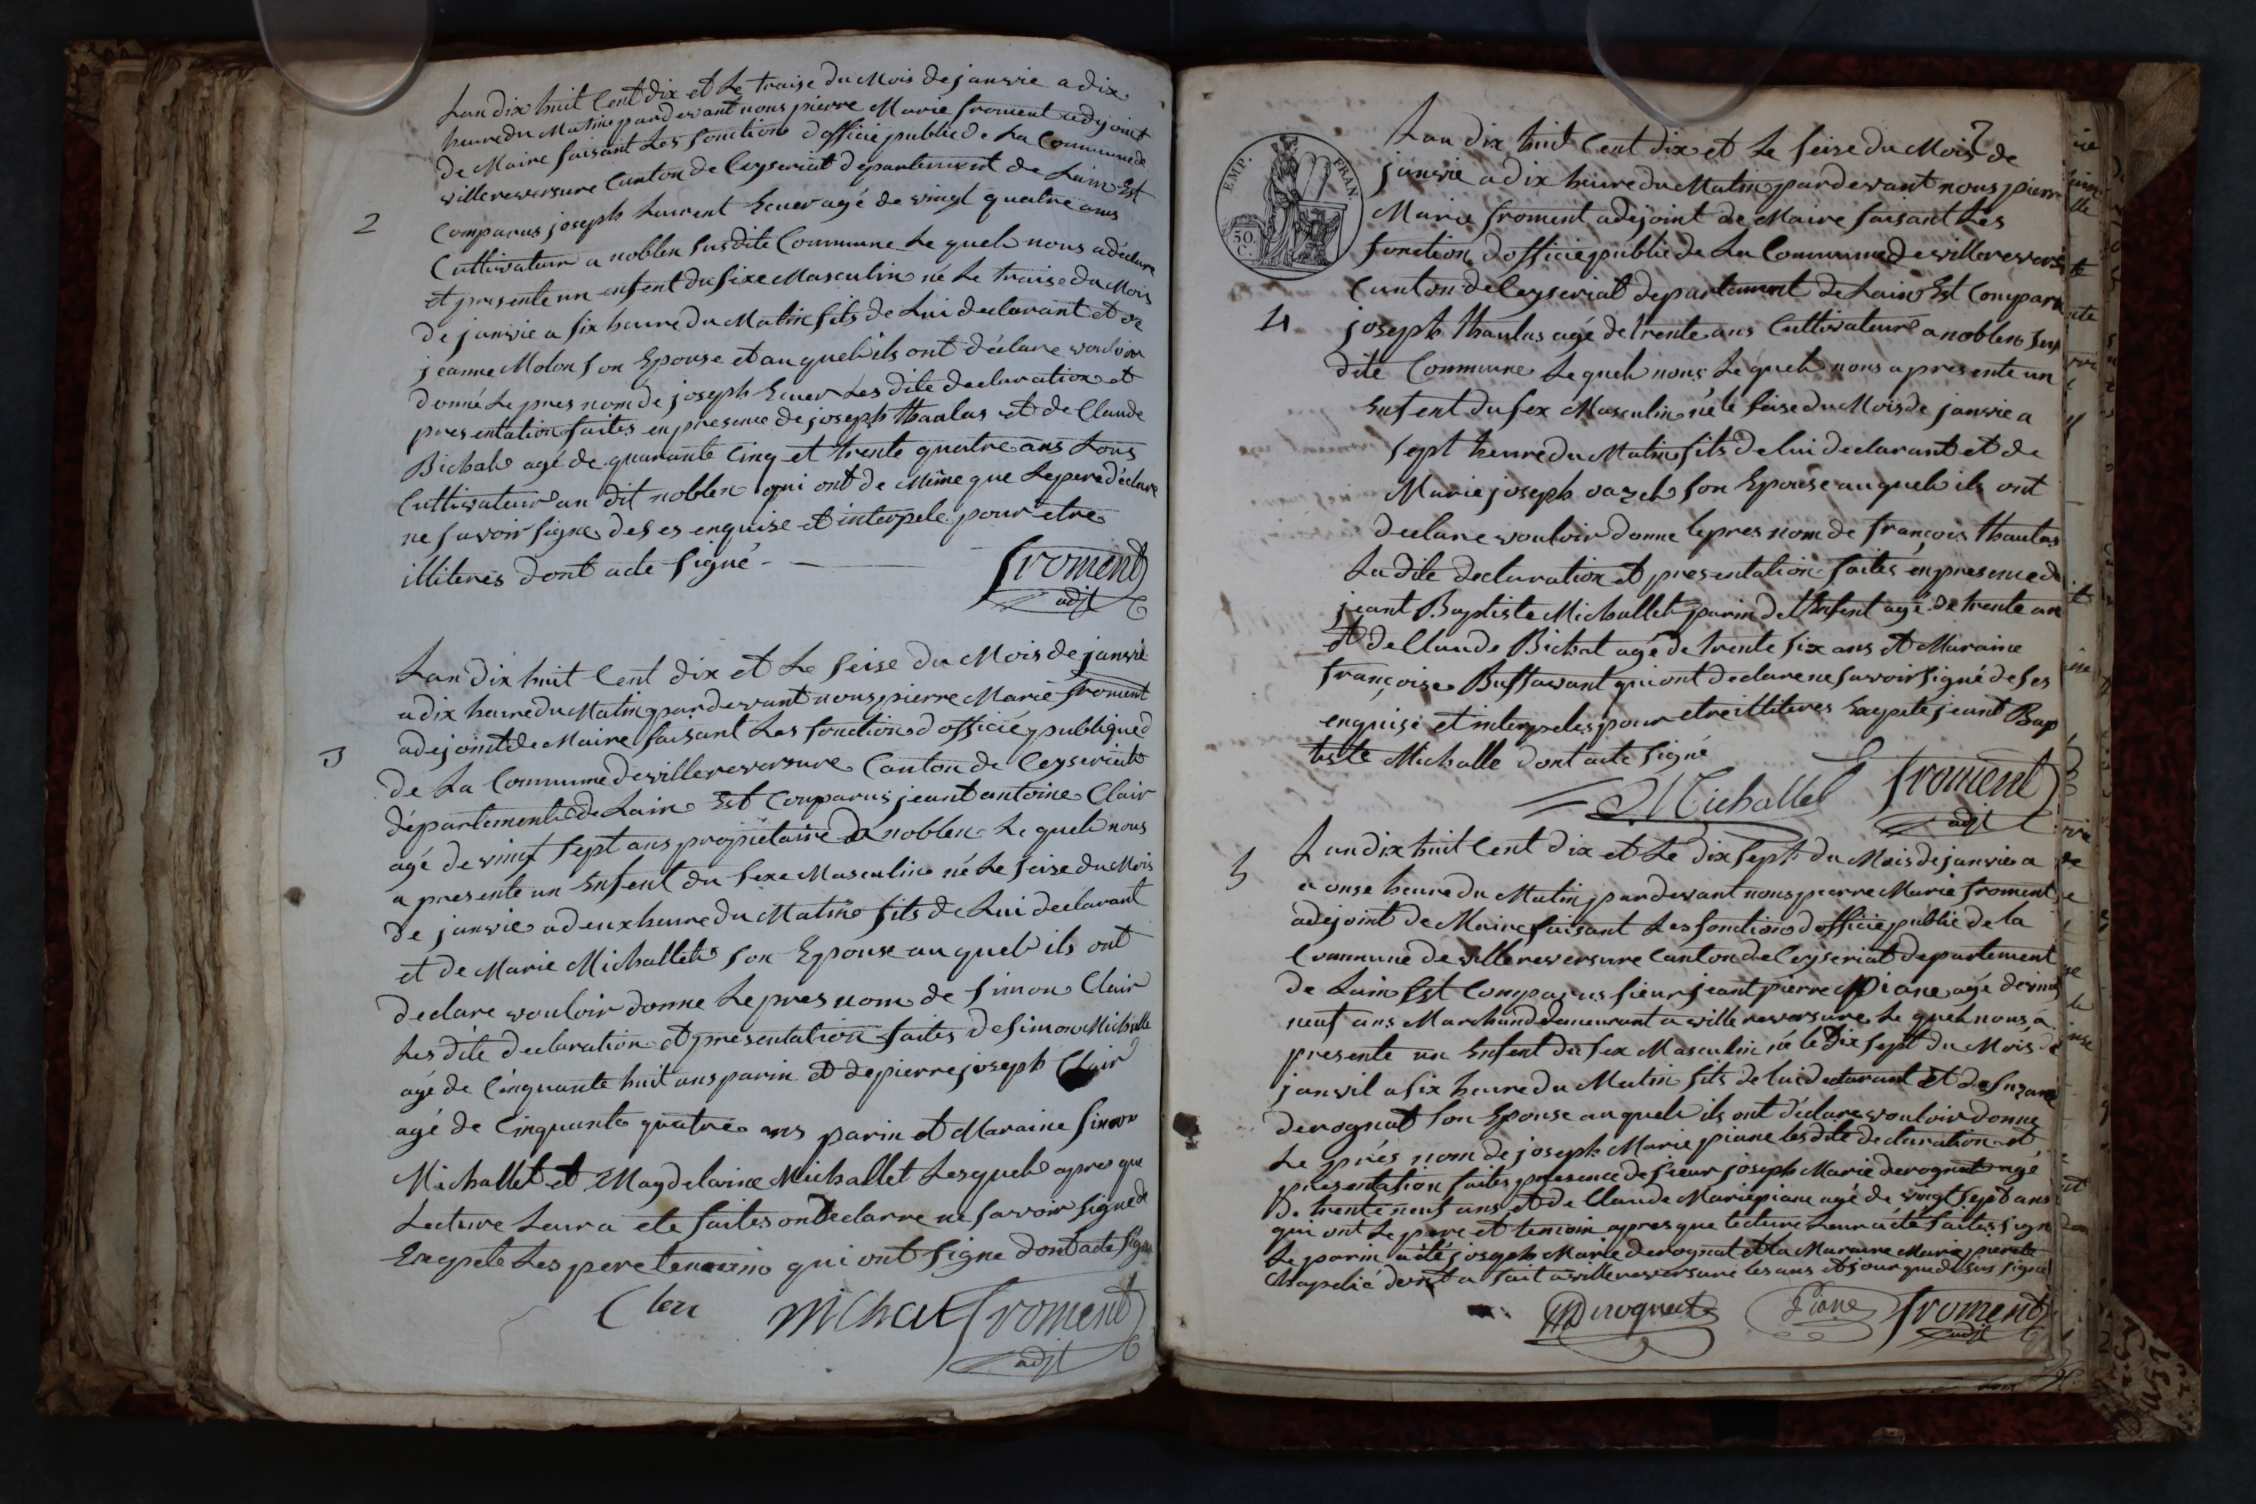 Lan dix huit Cent dix et Le traise du Mois de janvie a dix
heure du Matin pardevant nous pierre Marie froment adjoint
de Maire faisant Les fonctions d officie public de La Commune de
villereversure Canton de Ceyseriat departement de Lain Est
2
Comparus joseph Laurent Ecuer agé de vingt quatre ans
Cultivateur a noblen susdite Commune Le quel nous a déclare
et presente un enfent du sixe Masculin né Le traise du Mois
de janvie a six heure du Matin fils de Lui declarant et de
jeanne Molon son Epouse et au quel ils ont déclare vouloir
donné Le pres nom de joseph Ecuer Les dite declaration et
presentation faites en presence de joseph thaulas et de Claude
Bichat agé de quarante Cinq et trente quatre ans Lous
Cultivateur au dit noblen qui ont de Même que Le pere déclare
ne savoir signe de ses enquise et interpele pour etre
illiteres dont acte signé -
froment
adjt
Lan dix huit Cent dix et Le seise du Mois de janvié
a dix heure du Matin pardevant nous pierre Marie froment
adejoint de Maire faisant Les fonction d officié publique d
3
de La Commune de villereversure Canton de Ceyseriat
département de Lain Est Comparus jeant antoine Clair
agé de vingt sept ans propiétaire a noblen Le quel nous
a presente un Enfent du sexe Masculin né Le seise du Mois
de janvie a deux heure du Matin fils de Lui declarant
et de Marie Michallet son Epouse au quel ils ont
declare vouloir donne Le pres nom de simon Clair
Les dite declaration et presentation faites de simon Michalle
agé de Cinquante huit ans parin et de pierre joseph Clair
agé de Cinquante quatre ans parin et Maraine simon
Michallet et Magdelaine Michallet Lesquels apres que
Lecture Leur a ete faites ont declarre ne savoir signe de
Exepete Les pere temoins qui ont signe dont acte signe
Clerc michalet froment
adjt
2
EMP. FRAN.
50.
C.
Lan dix huit Cent dix et Le seise du Mois de
janvie a dix heure du Matin pardevant nous pierre
Marie froment adejoint de Maire faisant Les
fonction d officie public de La Commune de villereversure
Canton de Ceyseriat departament de Lain Est Comparu
4
joseph thaulas agé de trente ans Cultivateur a noblen sus
dite Commune Le quel nous Le quel nous a presente un
Enfent du sex Masculin né le seise du Mois de janvie a
sept heure du Matin fils de lui declarant et de
Marie joseph vazel son Epouse au quel ils ont
declare vouloir donne le pres nom de françois thaulas
La dite declaration et presentation faites en presence de
jeant Baptiste Michallet parin de l Enfent agé de trente an
et de Claude Bichat agé de trente six ans et Maraine
françoise Buffavant qui ont declare ne savoir signé de ses
enquise et interpeles pour etre illiteres Exepeté jeant Bap
tiste Michalle dont acte signé
Michallet froment
adjt
5
Lan dix huit Cent dix et Le dix sept du Mois de janvie a
a onse heure du Matin pardevant nous pierre Marie froment
adejoint de Maire faisant Les fonctions d officie public de la
Commune de villereversure Canton de Ceyseriat departement
de Lain Est Comparus sieur jeant pierre Piane agé de vingt
neuf ans Marchand demeurant a villereversure Le quel nous a
presente un Enfent du sex Masculin né le Dix sept du Mois de
janvié a six heure du Matin fils de lui declarant Et de suzane
derognat son Epouse au quel ils ont déclare vouloir donne
Le prés nom de joseph Marie piane les dite declaration et
presentation faites presence de sieur joseph Marie derognat agé
De trente neuf ans et de Claude Marie piane agé de vingt sept ans
qui ont Le pere et temoin apres que lecture Leur a été faites sign
Le parin a été joseph Marie derognat et la Maraine Marie pierete
Chapelié dont a fait a villereversure les ans et jour que desus signé
Derognat Piane froment
adjt